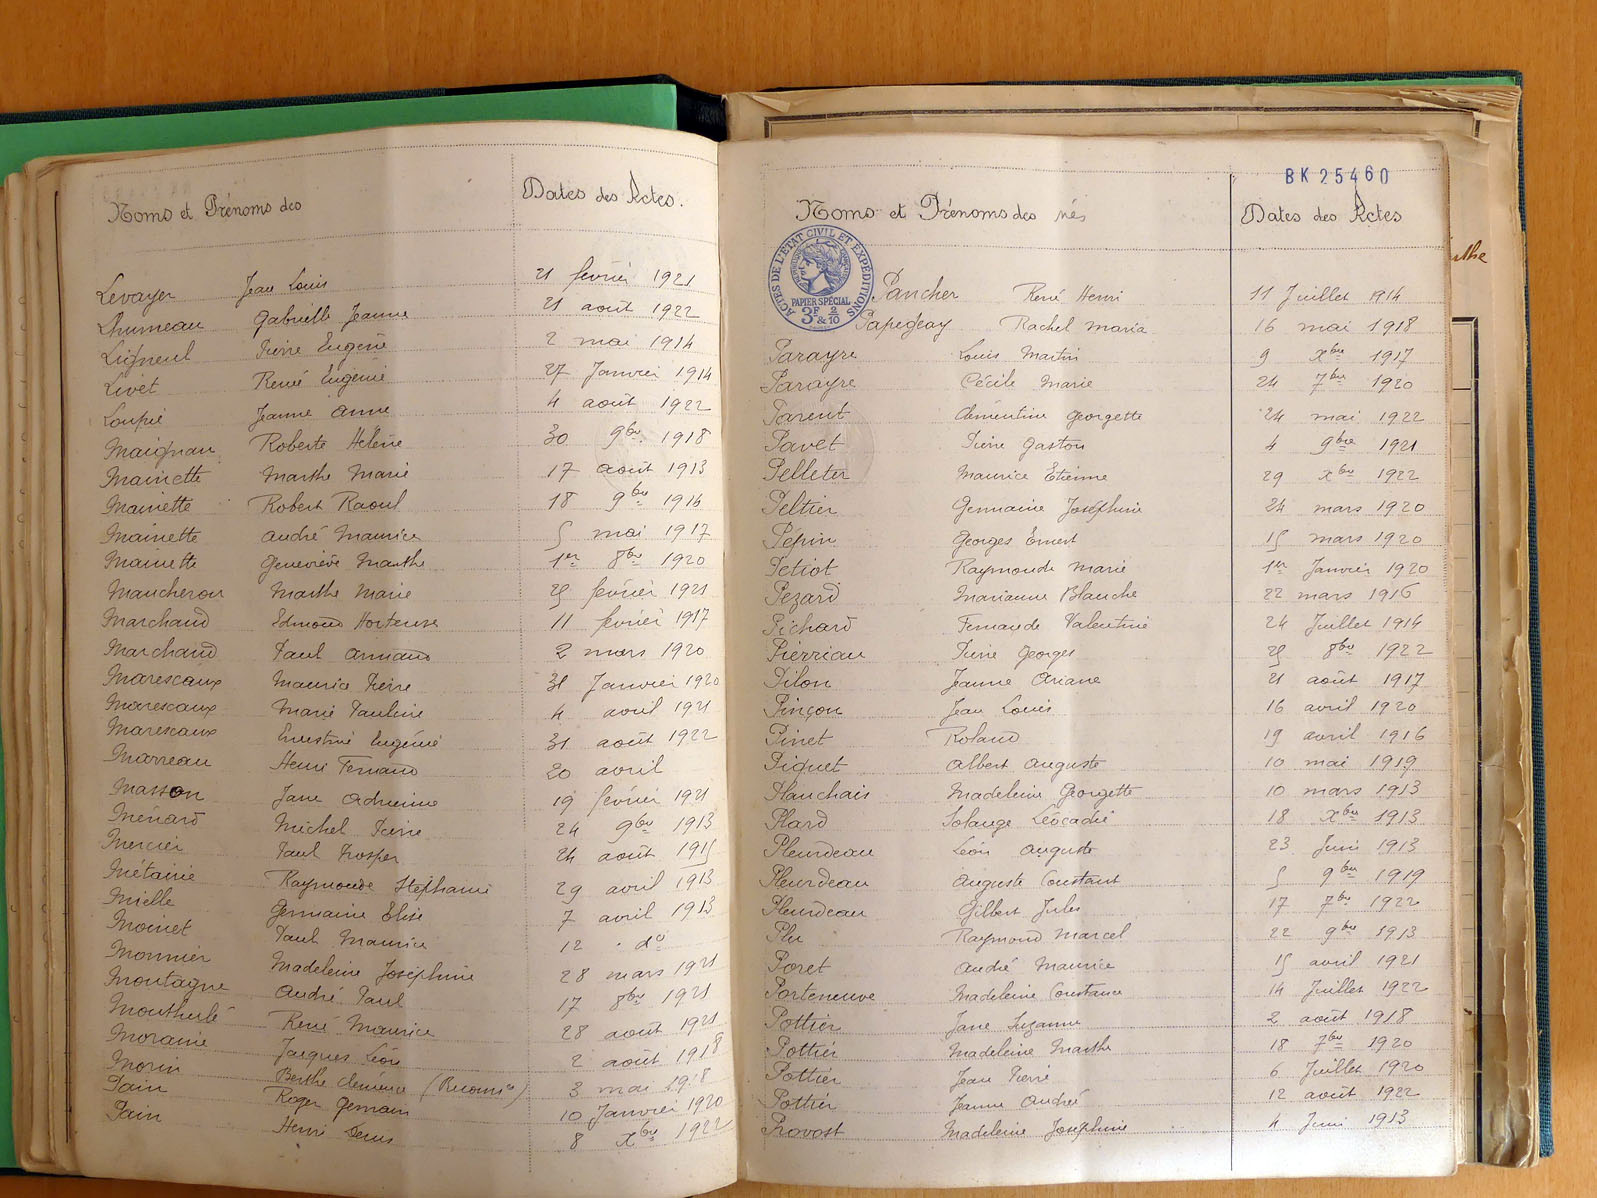 Noms et Prénoms des
Dates des Actes.
Levayer Jean Louis 21 février 1921
Lhumeau Gabrielle Jeanne 21 août 1922
Ligneul Pierre Eugène 2 mai 1914
Livet René Eugène 27 Janvier 1914
Loupie Jeanne Anne 4 août 1922
Maignan Roberte Hélène 30 9bre 1918
Mainette Marthe Marie 17 août 1913
Mainette Robert Raoul 18 9bre 1914
Mainette André Maurice 5 mai 1917
Mainette Geneviève Marthe 1er 8bre 1920
Maucheron Marthe Marie 25 février 1921
Marchand Edmond Hortense 11 février 1917
Marchand Paul Armand 2 mars 1920
Marescaux Maurice Pierre 31 Janvier 1920
Marescaux Marie Pauline 4 avril 1921
Marescaux Ernestine Eugénie 31 août 1922
Marreau Henri Fernand 20 avril
Masson Jane Adrienne 19 février 1921
Ménard Michel Pierre 24 9bre 1913
Mercier Paul Prosper 24 août 1915
Métairie Raymonde Stéphanie 29 avril 1913
Mielle Germaine Elise 7 avril 1913
Moinet Paul Maurice 12 do
Monnier Madeleine Joséphine 28 mars 1921
Montagne André Paul 17 8bre 1921
Monthulé René Maurice 28 août 1921
Moraine Jacques Léon 2 août 1918
Morin Berthe Clémence 3 mai 1918
Pain Roger Germain 10 Janvier 1920
Pain Henri Denis 8 xbre 1922
BK 25460
Noms et Prénoms des nés
Dates des Actes
ACTES DE L'ÉTAT CIVIL ET EXPÉDITIONS
PAPIER SPÉCIAL
3F & 2/10
Pancher René Henri 11 Juillet 1914
Papegeay Rachel Maria 16 mai 1918
Parayre Louis Martin 9 xbre 1917
Parayre Cécile Marie 24 7bre 1920
Parent Clémentine Georgette 24 mai 1922
Pavet Pierre Gaston 4 9bre 1921
Pelleter Maurice Etienne 29 xbre 1922
Peltier Germaine Joséphine 24 mars 1920
Pépin Georges Ernest 15 mars 1920
Petiot Raymonde Marie 1er Janvier 1920
Pezard Marianne Blanche 22 mars 1916
Pichard Fernande Valentine 24 Juillet 1914
Pierriau Pierre Georges 25 8bre 1922
Pilon Jeanne Ariane 21 août 1917
Pinçon Jean Louis 16 avril 1920
Pinet Roland 19 avril 1916
Piquet Albert Auguste 10 mai 1919
Planchais Madeleine Georgette 10 mars 1913
Plard Solange Léocadie 18 xbre 1913
Pleurdeau Léon Auguste 23 Juin 1913
Pleurdeau Auguste Constant 5 9bre 1919
Pleurdeau Gilbert Jules 17 7bre 1922
Plu Raymond Marcel 22 9bre 1913
Poret André Maurice 15 avril 1921
Porteneuve Madeleine Constance 14 Juillet 1922
Pottier Jane Suzanne 2 août 1918
Pottier Madeleine Marthe 18 7bre 1920
Pottier Jean Pierre 6 Juillet 1920
Pottier Jeanne André 12 août 1922
Provost Madeleine Joséphine 4 Juin 1913